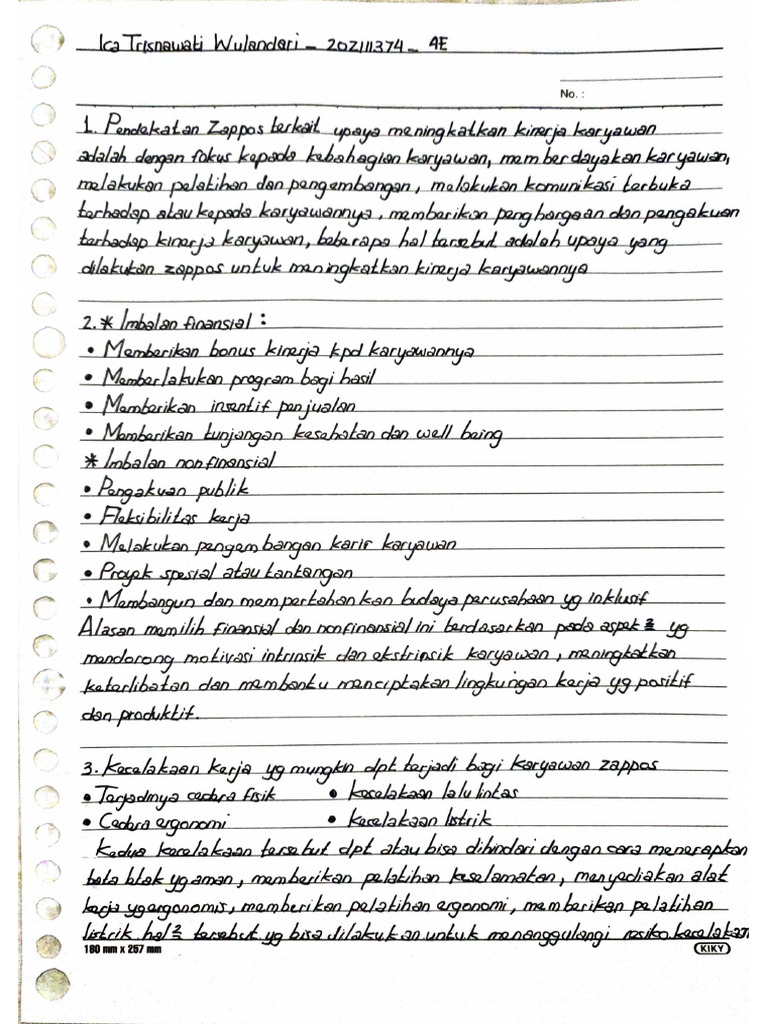 Ica Trisnawati Wulandari - 202111374 - 4E
No. :
1. Pendekatan Zappos terkait upaya meningkatkan kinerja karyawan
adalah dengan fokus kepada kebahagian karyawan, memberdayakan karyawan,
melakukan pelatihan dan pengembangan, melakukan komunikasi terbuka
terhadap atau kepada karyawannya, memberikan penghargaan dan pengakuan
terhadap kinerja karyawan, beberapa hal tersebut adalah upaya yang
dilakukan zappos untuk meningkatkan kinerja karyawannya
2. * Imbalan finansial :
• Memberikan bonus kinerja kpd karyawannya
• Memberlakukan program bagi hasil
• Memberikan insentif penjualan
• Memberikan tunjangan kesehatan dan well being
* Imbalan nonfinansial
• Pengakuan publik
• Fleksibilitas kerja
• Melakukan pengembangan karir karyawan
• Proyek spesial atau tantangan
• Membangun dan mempertahankan budaya perusahaan yg inklusif
Alasan memilih finansial dan nonfinansial ini berdasarkan pada aspek2 yg
mendorong motivasi intrinsik dan ekstrinsik karyawan, meningkatkan
keterlibatan dan membantu menciptakan lingkungan kerja yg positif
dan produktif.
3. Kecelakaan kerja yg mungkin dpt terjadi bagi karyawan zappos
• Terjadinya cedera fisik • kecelakaan lalu lintas
• Cedera ergonomi • kecelakaan listrik
Kedua kecelakaan tersebut dpt atau bisa dihindari dengan cara menerapkan
tata letak yg aman, memberikan pelatihan keselamatan, menyediakan alat
kerja yg ergonomis, memberikan pelatihan ergonomi, memberikan pelatihan
listrik. hal2 tersebut yg bisa dilakukan untuk menanggulangi resiko kecelakaan
180 mm x 257 mm
KIKY